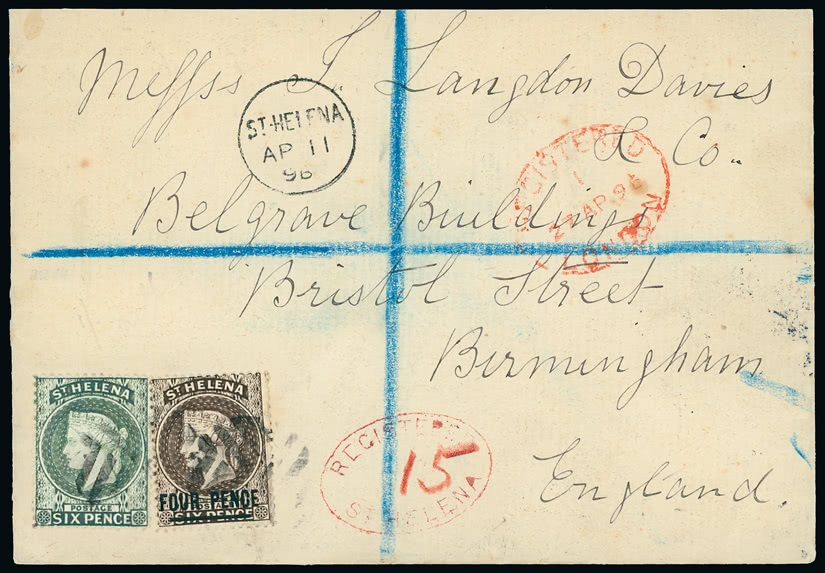 Messrs J Langdon Davies
& Co.
Belgrave Buildings
Bristol Street
Birmingham
England.
ST·HELENA
AP 11
96
REGISTERED
1
27 AP 96
LONDON
REGISTERED
15
ST HELENA
ST HELENA
POSTAGE
SIX PENCE
ST HELENA
FOUR PENCE
POSTAGE
SIX PENCE